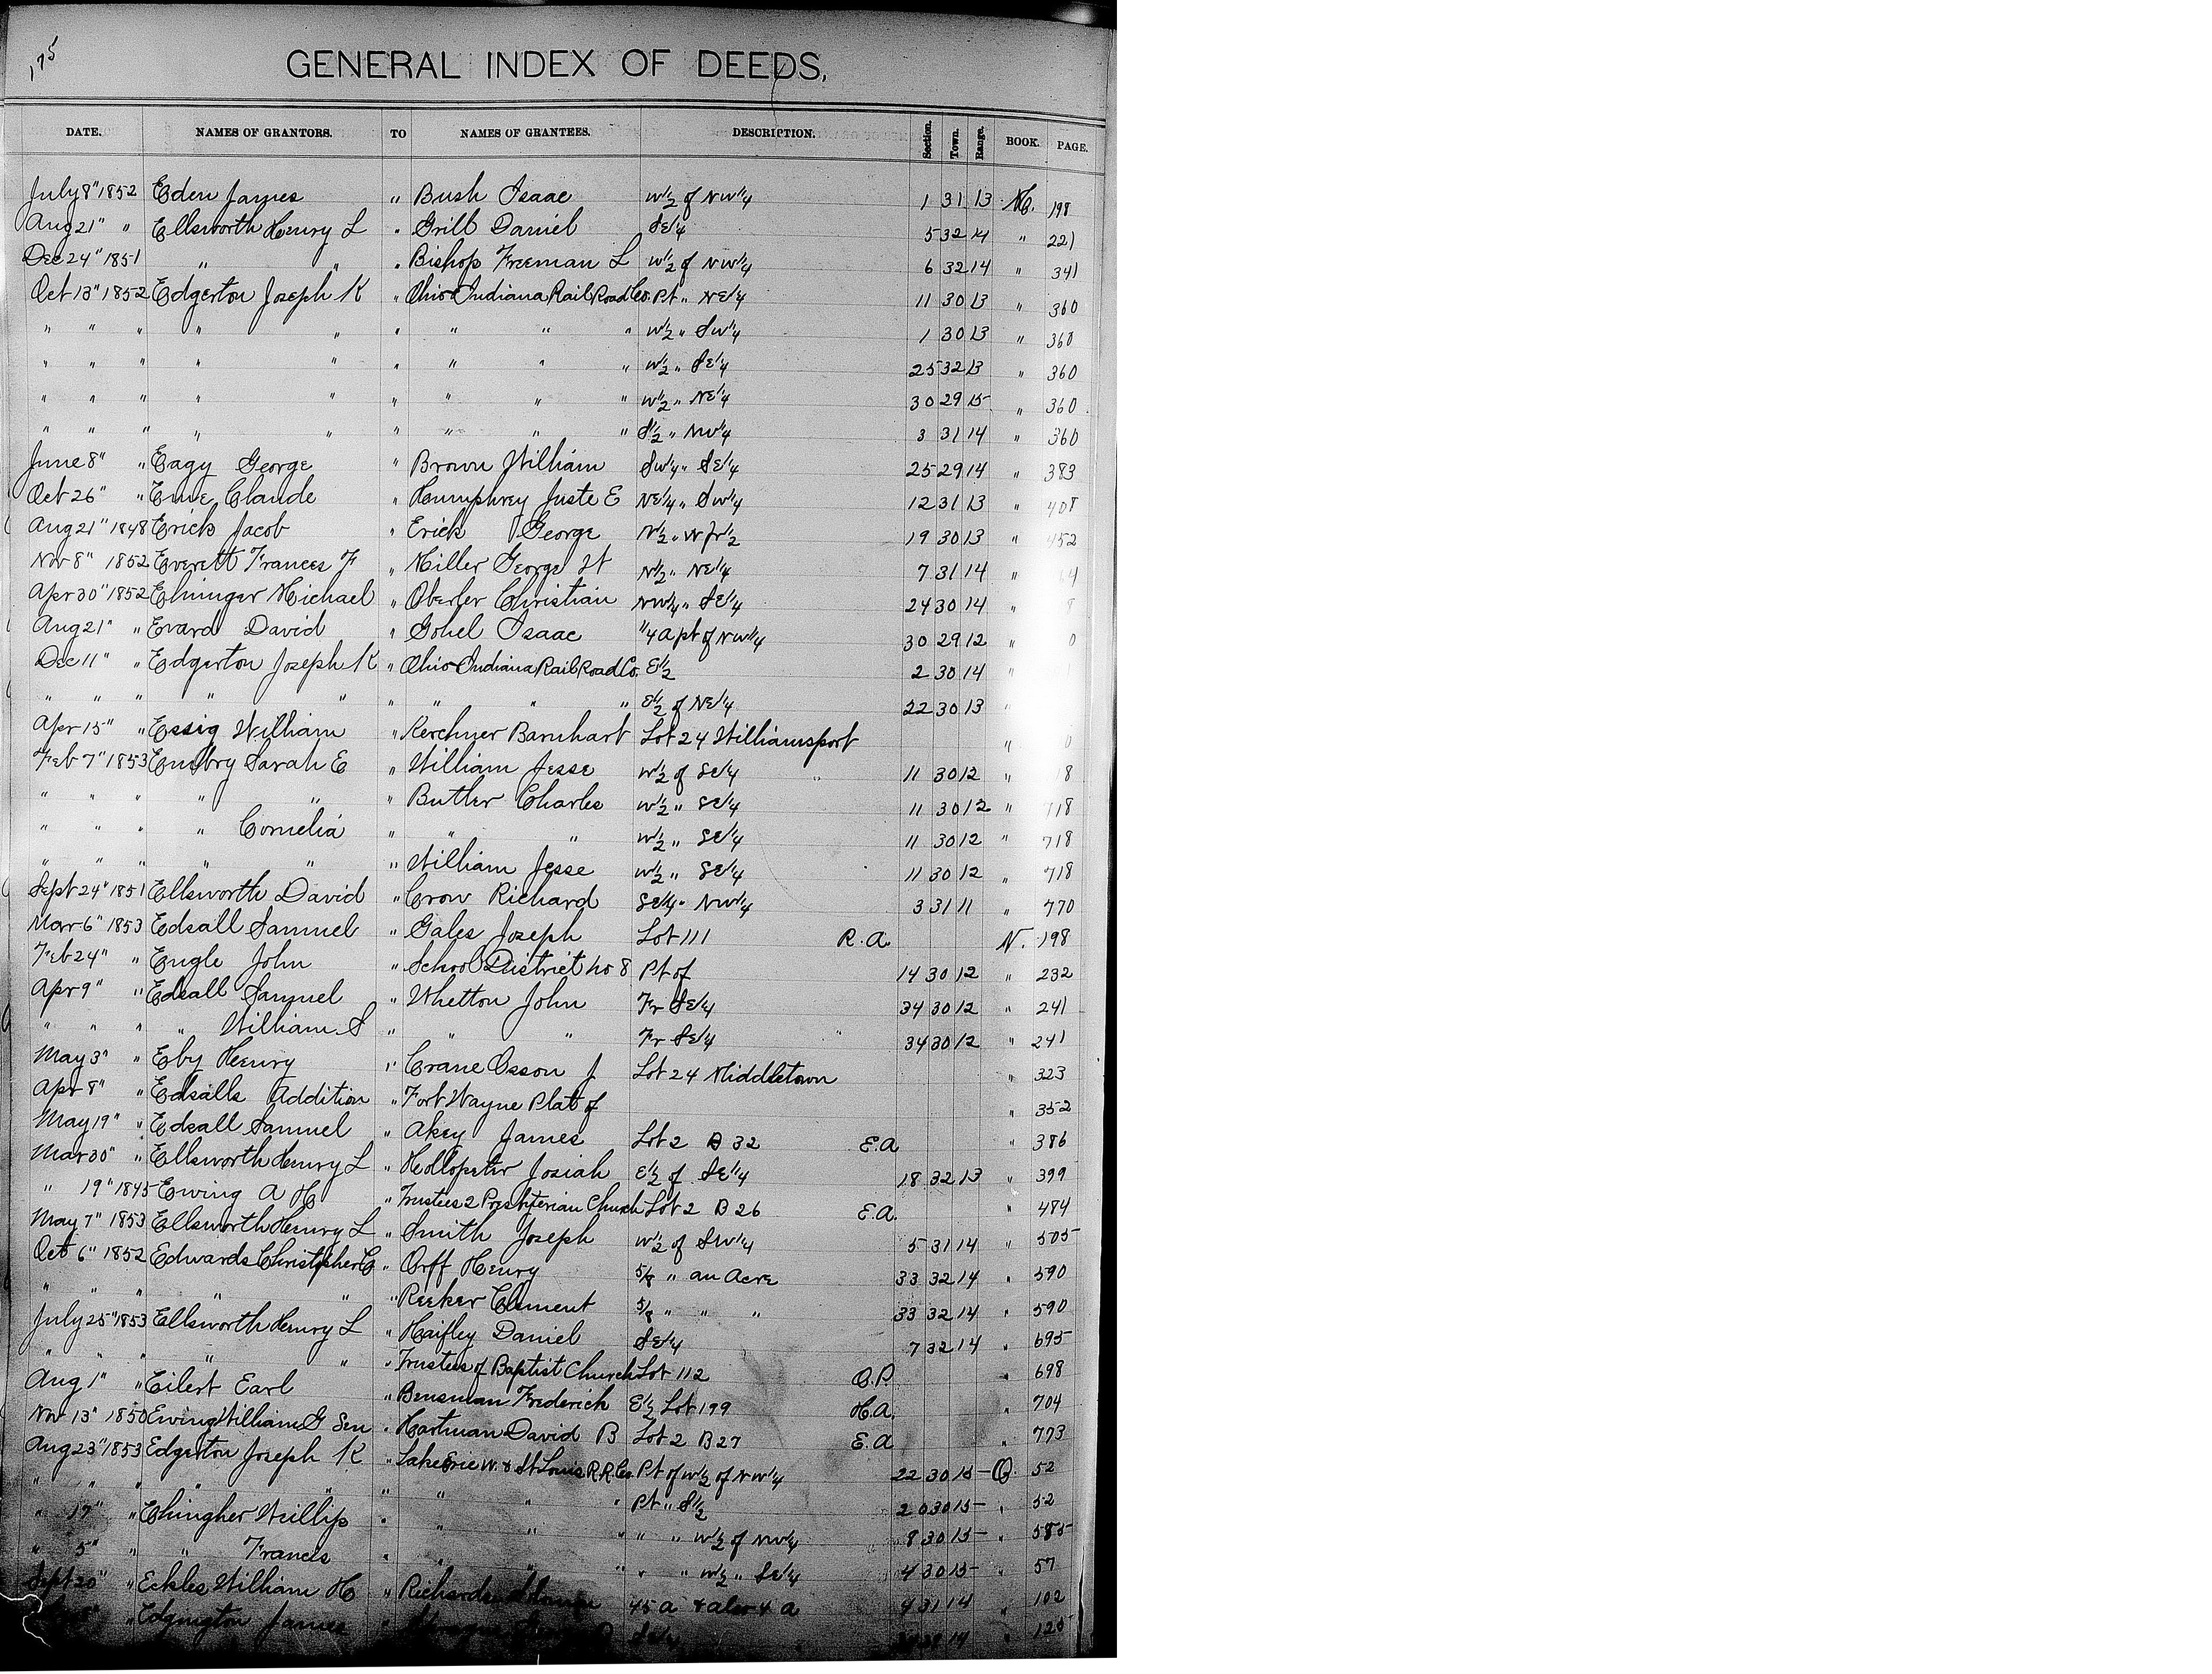 175
GENERAL INDEX OF DEEDS,
DATE. NAMES OF GRANTORS. TO NAMES OF GRANTEES. DESCRIPTION. Section. Town. Range. BOOK. PAGE.
July 8" 1852 Eden James " Bush Isaac W1/2 of NW1/4 1 31 13 M. 198
Aug 21" " Ellsworth Henry L " Grill Daniel SE1/4 5 32 14 " 221
Dec 24" 1851 " " " Bishop Freeman L W1/2 of NW1/4 6 32 14 " 341
Oct 13" 1852 Edgerton Joseph K " Ohio & Indiana Rail Road Co. Pt " NE1/4 11 30 13 " 360
" " " " " " " " " W1/2 " SW1/4 1 30 13 " 360
" " " " " " " " " W1/2 " SE1/4 25 32 13 " 360
" " " " " " " " " W1/2 " NE1/4 30 29 15 " 360
" " " " " " " " " S1/2 " NW1/4 3 31 14 " 360
June 8" " Eagy George " Brown William SW1/4 " SE1/4 25 29 14 " 383
Oct 26" " Eme Claude " Humphrey Juste E NE1/4 " SW1/4 12 31 13 " 408
Aug 21" 1848 Erick Jacob " Erick George N1/2 " W fr 1/2 19 30 13 " 452
Nov 8" 1852 Everett Frances F " Miller George W N1/2 " NE1/4 7 31 14 "
Apr 30" 1852 Ehinger Michael " Oberler Christian NW1/4 " SE1/4 24 30 14 "
Aug 21" " Evard David " Gohel Isaac 1/4 a pt of NW1/4 30 29 12 "
Dec 11" " Edgerton Joseph K " Ohio & Indiana Rail Road Co. E1/2 2 30 14 "
" " " " " " " " " E1/2 of NE1/4 22 30 13 "
Apr 15" " Essig William " Kerchner Barnhart Lot 24 Williamsport "
Feb 7" 1853 Embry Sarah E " William Jesse W1/2 of SE1/4 " 11 30 12 " 18
" " " " " " Butler Charles W1/2 " SE1/4 11 30 12 " 718
" " " " Cornelia " " " W1/2 " SE1/4 11 30 12 " 718
" " " " " " William Jesse W1/2 " SE1/4 11 30 12 " 718
Sept 24" 1851 Ellsworth David " Crow Richard SE1/4 " NW1/4 3 31 11 " 770
Mar 6" 1853 Edsall Samuel " Gales Joseph Lot 111 R.A. N. 198
Feb 24" " Engle John " School District No 8 Pt of 14 30 12 " 232
Apr 9" " Edsall Samuel " Whetton John Fr SE1/4 34 30 12 " 241
" " " " William S " " " Fr SE1/4 34 30 12 " 241
May 3" " Eby Henry " Crane Osson J Lot 24 Middletown " 323
Apr 8" " Edsalls Addition " Fort Wayne Plat of " 352
May 19" " Edsall Samuel " Akey James Lot 2 B 32 E.A " 386
Mar 30" " Ellsworth Henry L " Hollopeter Josiah E1/2 of SE1/4 18 32 13 " 399
" 19" 1845 Ewing A H " Trustees 2 Presbyterian Church Lot 2 B 26 E.A. " 484
May 7" 1853 Ellsworth Henry L " Smith Joseph W1/2 of SW1/4 5 31 14 " 505
Oct 6" 1852 Edwards Christopher C " Orff Henry 5/8 " an Acre 33 32 14 " 590
" " " " " " Reeker Clement 5/8 " " " 33 32 14 " 590
July 25" 1853 Ellsworth Henry L " Haifley Daniel SE1/4 7 32 14 " 695
" " " " " " Trustees of Baptist Church Lot 112 O.P. " 698
Aug 1" " Eilert Earl " Bensman Frederick E1/2 Lot 199 H.A. " 704
Nov 13" 1850 Ewing William G Sen " Hartman David B Lot 2 B 27 E.A " 773
Aug 23" 1853 Edgerton Joseph K " Lake Erie W. & St Louis R.R. Co. Pt of W1/2 of NW1/4 22 30 15 O. 52
" " " " " " " " " Pt " S1/2 20 30 15 " 52
" 17" " Ehingher Phillip " " " " " " W1/2 of NW1/4 8 30 15 " 585
" 5" " " Francis " " " " " " W1/2 " SE1/4 4 30 15 " 57
Sept 20" " Eckles William H " Richards 45 a & also 4 a 4 31 14 " 102
" Edgington James " SE1/4 14 " 125